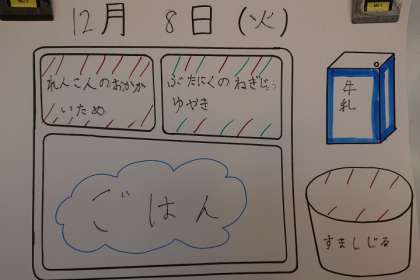 12月 8日 (火)
れんこんのおかか
いため
ぶたにくのねぎじょう
ゆやき
牛
乳
ごはん
すましじる